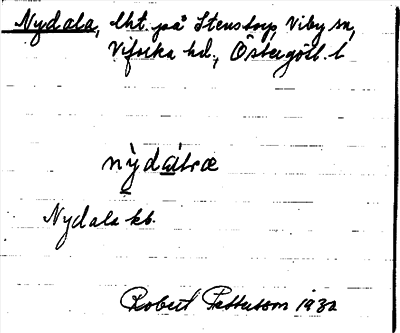 Nydala, lht. på Stenstorp Viby sn,
Vifolka hd., Östergötl. l
nỳdạ́træ
Nydala kb.
Robert Pettersson 1932